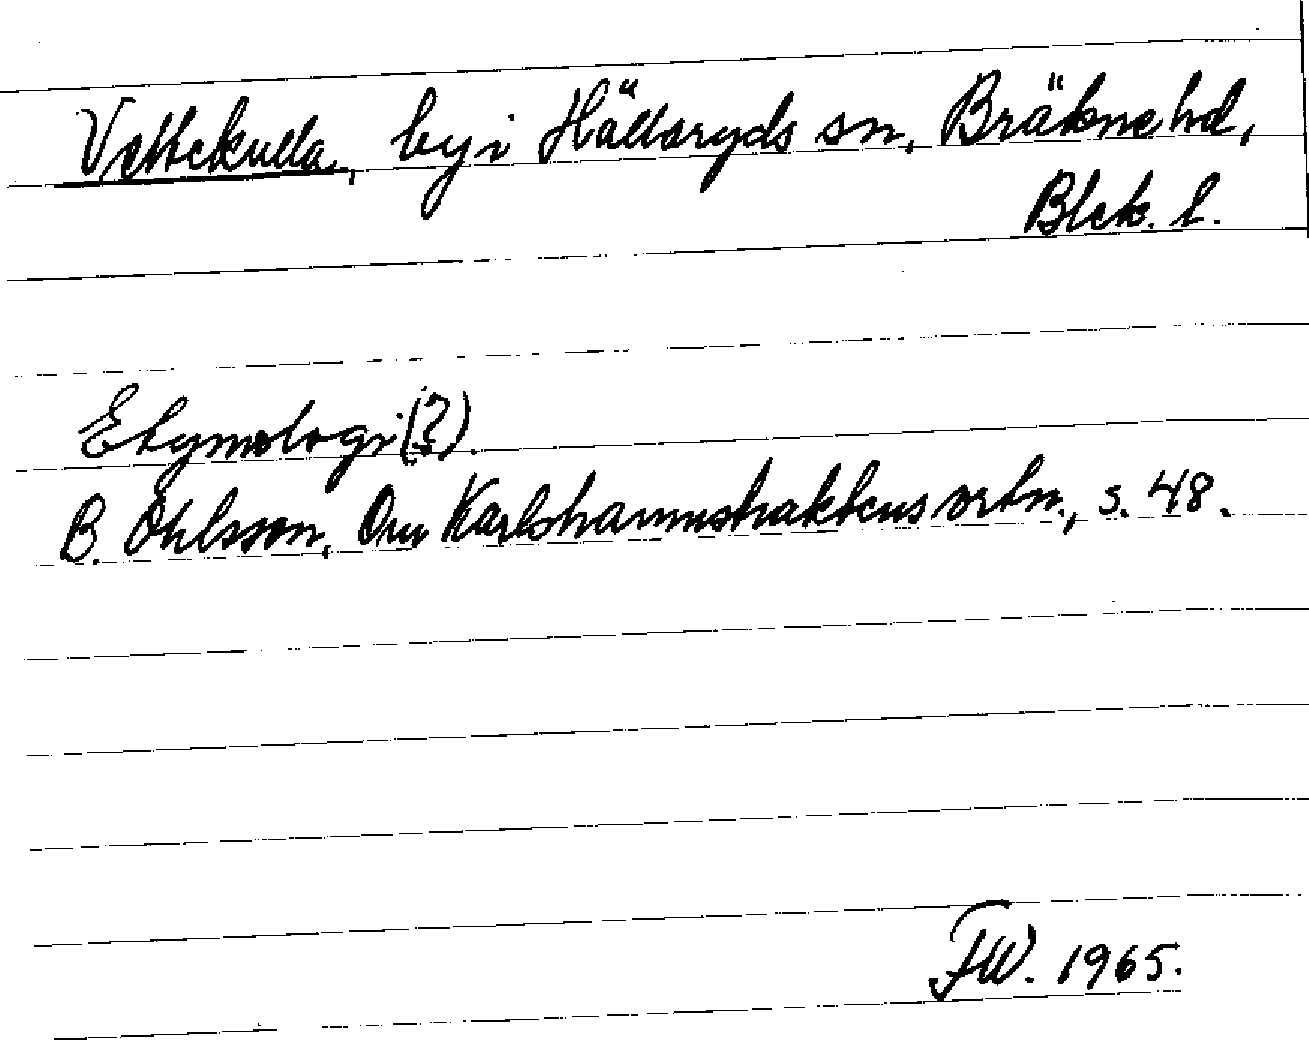 Vettekulla, by i Hällaryds sn, Bräkne hd,
Blek. l.
Etymologi (?).
B. Ohlsson, Om Karlshamnstraktens ortn., s. 48.
FW. 1965.